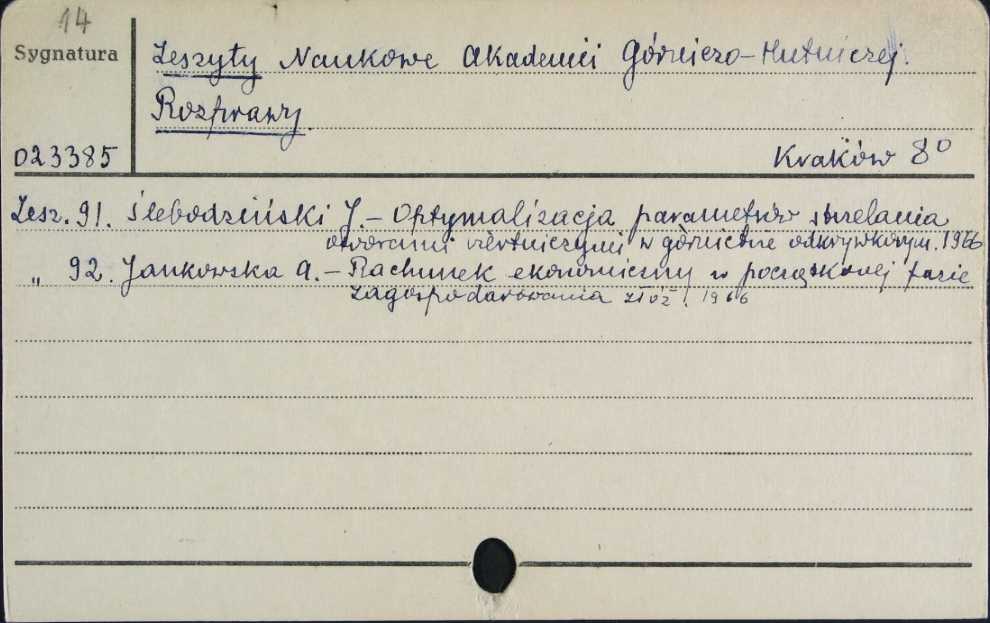 14
Sygnatura
Zeszyty Naukowe Akademii Górniczo-Hutniczej.
Rozprawy
023385
Kraków 8°
Zesz. 91. Ślebodziński J. - Optymalizacja parametrów strzelania
otworami wiertniczymi w górnictwie odkrywkowym. 1966
„ 92. Jankowska A. - Rachunek ekonomiczny w początkowej fazie
zagospodarowania złóż. 1966